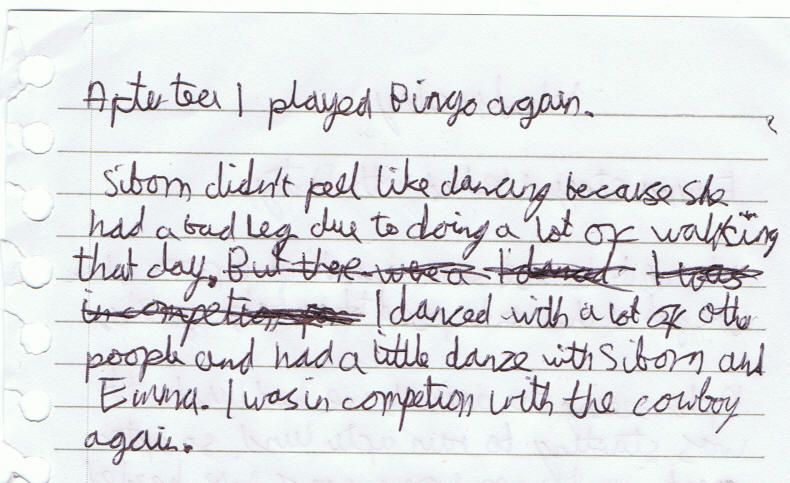 After tea I played Bingo again.
Sibom didn't feel like dancing because she
had a bad leg due to doing a lot of walking
that day. But ther was a I danced I was
in competion I danced with a lot of other
poople and had a little danze with Sibom and
Emma. I was in competion with the cowboy
again.